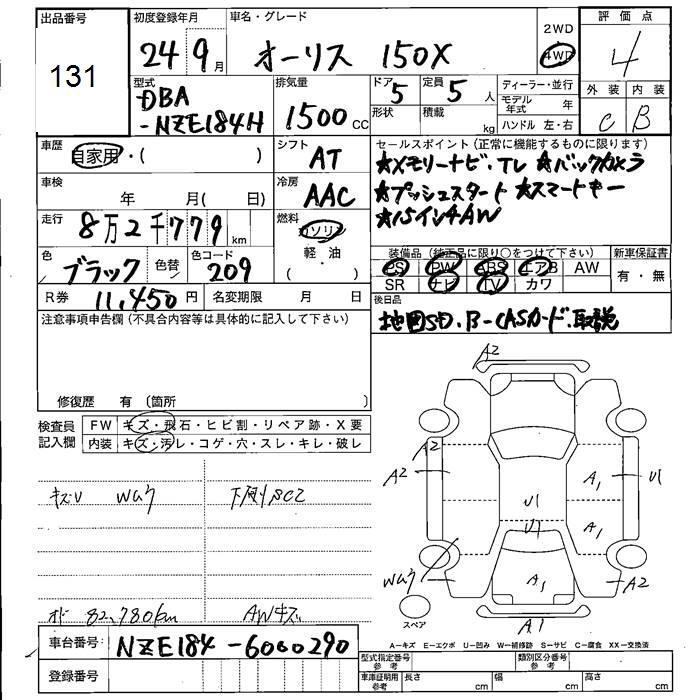 出品番号
131
初度登録年月
24 9月
車名・グレード
オーリス 150X
2WD
4WD
評価点
4
外装 内装
C B
型式
DBA
-NZE184H
排気量
1500 CC
ドア 5
形状
定員 5 人
積載 kg
ディーラー・並行
モデル年式 年
ハンドル 左・右
車歴
自家用・( )
シフト
AT
車検
年 月( 日)
冷房
AAC
走行
8万2千779 km
燃料
ガソリン
軽・油
( )
色
ブラック
色替
色コード
209
R券 11,450円
名変期限 月 日
セールスポイント(正常に機能するものに限ります)
★メモリーナビ・TV ★バックカメラ
★プッシュスタート ★スマートキー
★15インチAW
装備品(純正品に限り○をつけて下さい)
PS PW ABS エアB AW
SR ナビ TV カワ
新車保証書
有・無
後日品
地図SD、B-CASカード、取説
注意事項申告欄(不具合内容等は具体的に記入して下さい)
修復歴 有(箇所 )
検査員記入欄
FW キズ・飛石・ヒビ割・リペア跡・X要
内装 キズ・汚レ・コゲ・穴・スレ・キレ・破レ
キズU Wカク 下廻りSC2
オド 82,780km AWキズ
A2
A2
A2
A1
U1
U1
U1
A1
A1
Wカク
A2
A1
スペア
A−キズ E−エクボ U−凹み W−補修跡 S−サビ C−腐食 XX−交換済
車台番号: NZE184-6000290
登録番号:
型式指定番号参考
類別区分番号参考
車庫証明用参考 長さ cm 幅 cm 高さ cm